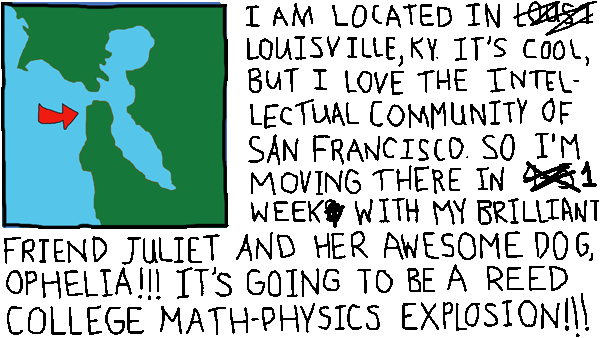 I AM LOCATED IN
LOUISVILLE, KY. IT'S COOL,
BUT I LOVE THE INTEL-
LECTUAL COMMUNITY OF
SAN FRANCISCO. SO I'M
MOVING THERE IN 1
WEEK WITH MY BRILLIANT
FRIEND JULIET AND HER AWESOME DOG,
OPHELIA!!! IT'S GOING TO BE A REED
COLLEGE MATH-PHYSICS EXPLOSION!!!